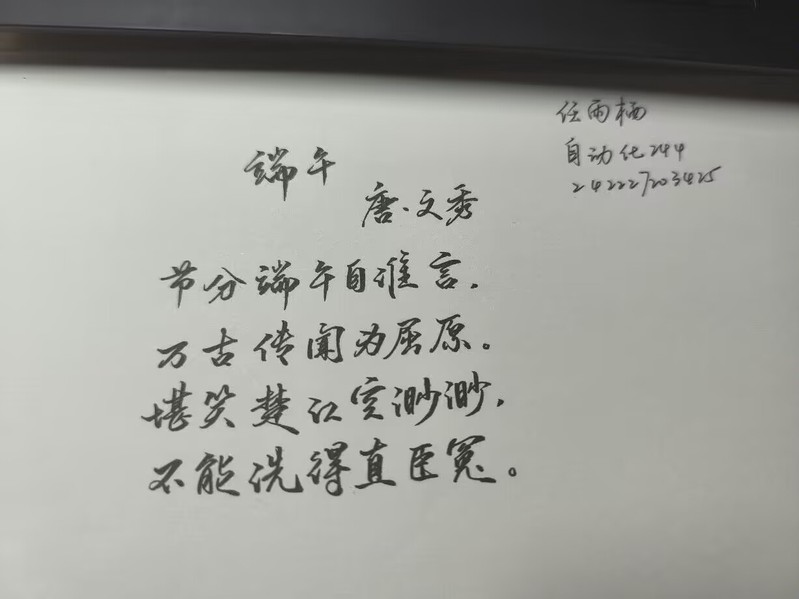 任雨栖
自动化244
242227203425
端午
唐·文秀
节分端午自谁言，
万古传闻为屈原。
堪笑楚江空渺渺，
不能洗得直臣冤。